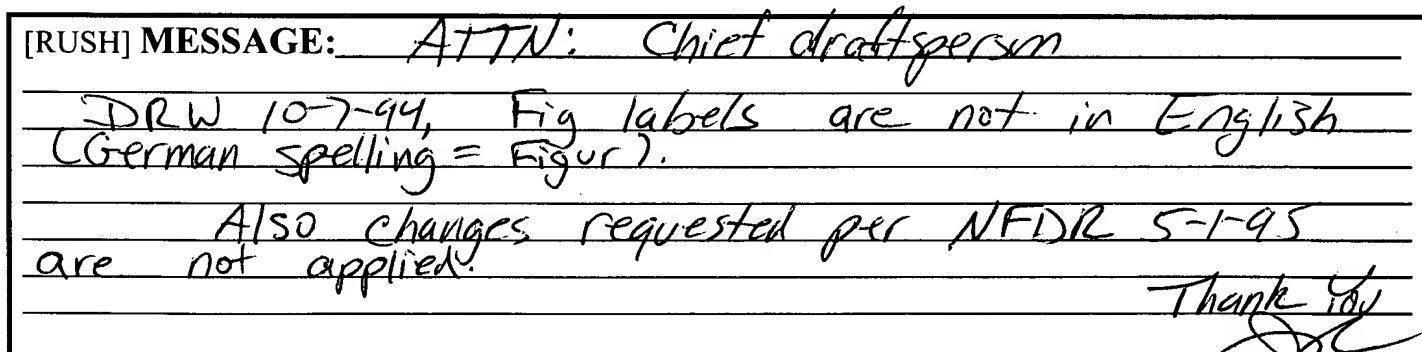 [RUSH] MESSAGE: ATTN: Chief draftsperson
DRW 10-7-94, Fig labels are not in English
(German spelling = Figur).
Also changes requested per NFDR 5-1-95
are not applied.
Thank You